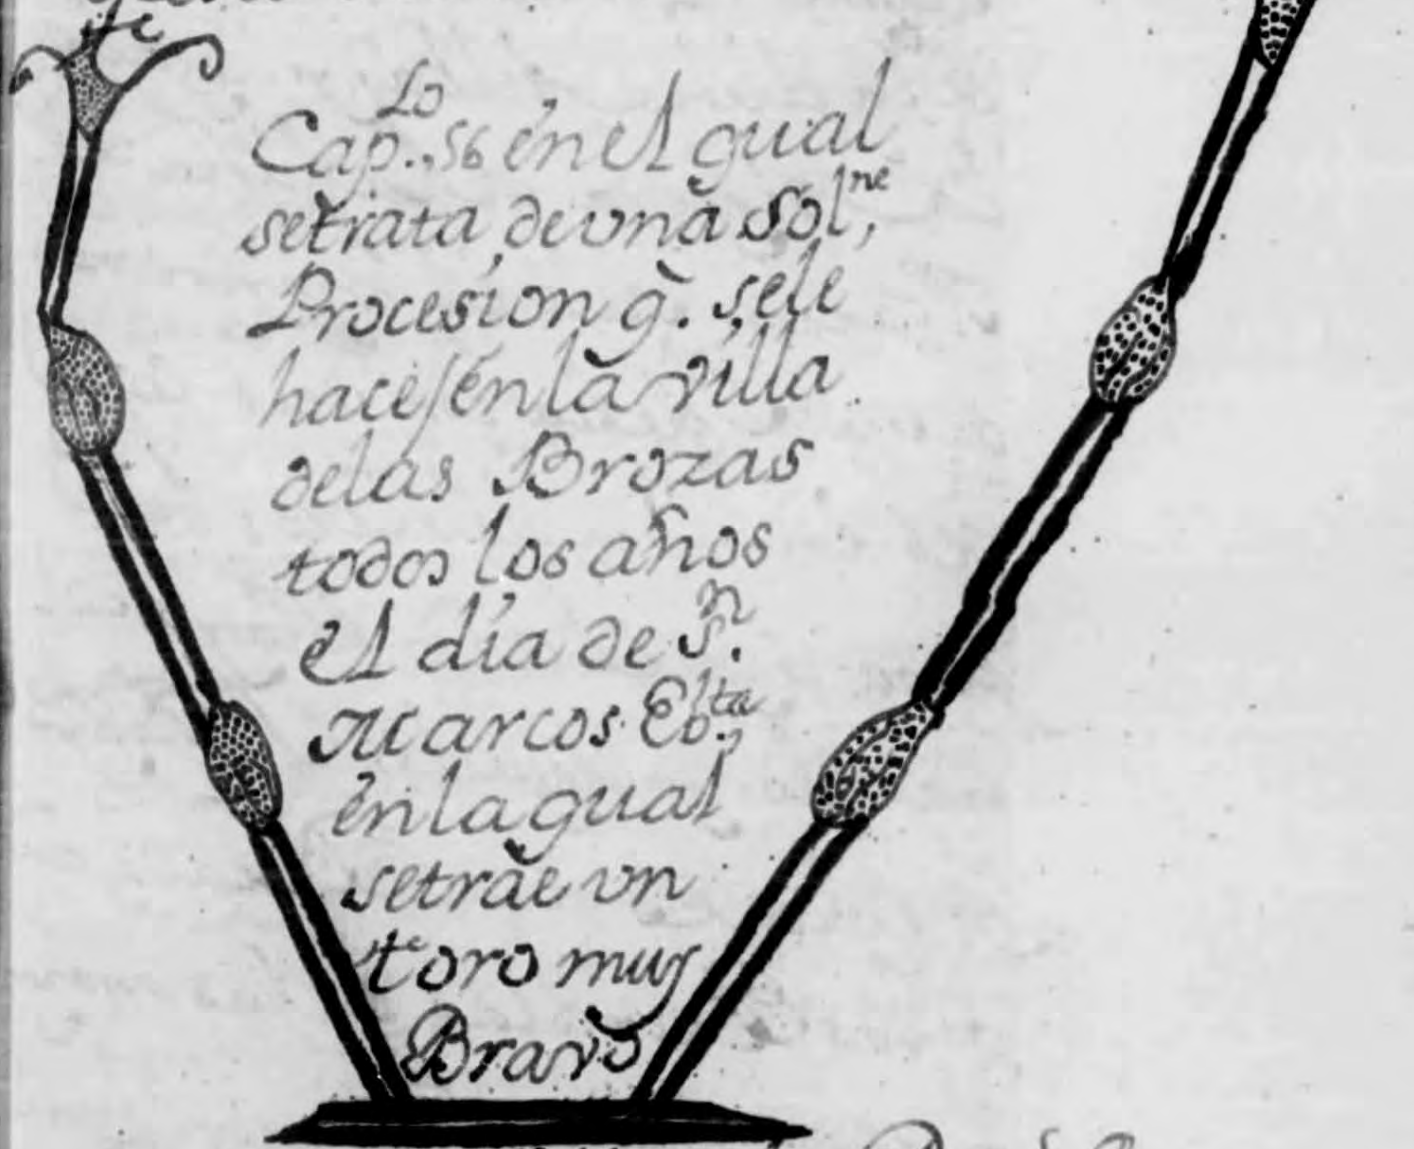 Cap.lo 56 en el qual
se trata de una Sol.ne
Procesion q. se le
hace, en la villa
de las Brozas
todos los años
el día de S.n
Marcos Eb.lta
en la qual
se trae vn
toro muy
Bravo